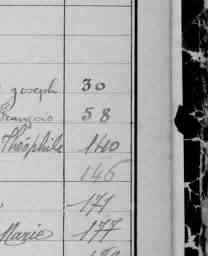 Joseph 30
François 58
Théophile 140
146
171
Marie 177